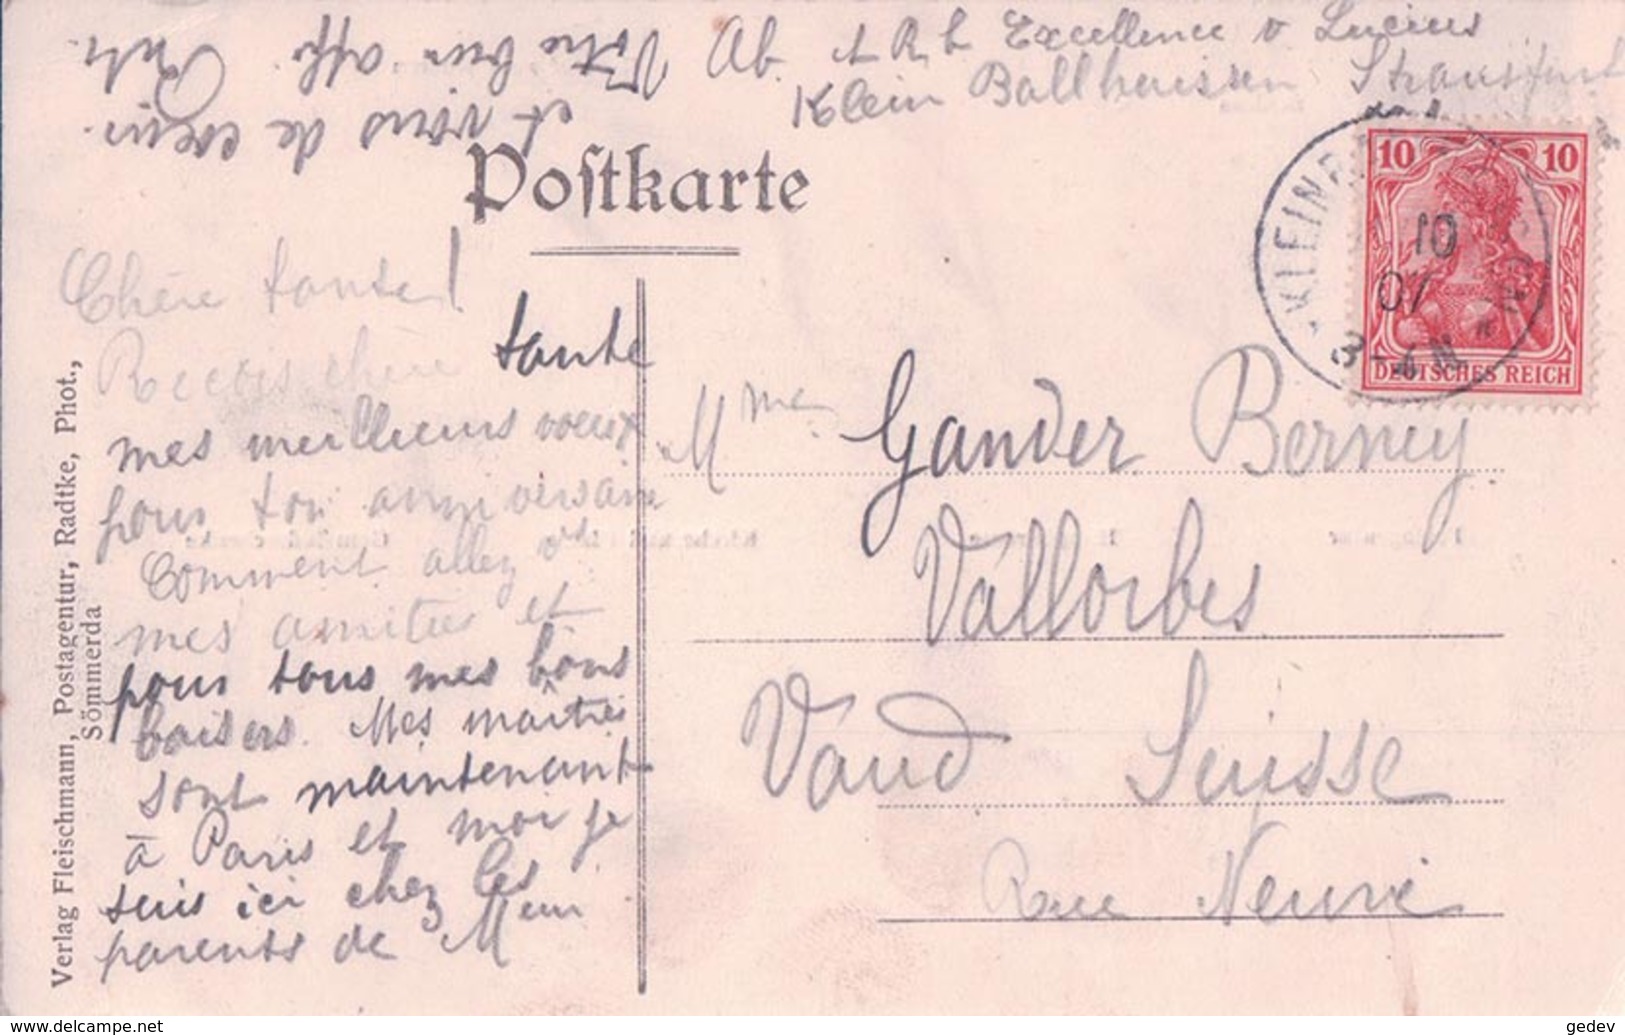 Ab Excellence v Lucius
Klein Ballhausen Straussfurt
et vous de cœur.
Votre bien aff.
Postkarte
10 10
KLEINB
10
07
3-4N
DEUTSCHES REICH
Chère tante!
Reçois chère tante
mes meilleurs voeux
pour ton anniversaire
Comment allez vs
mes amitiés et
pour tous mes bons
baisers. Mes maîtres
sont maintenant
à Paris et moi je
suis ici chez les
parents de Mem
Mme Gander Berney
Vallorbes
Vaud Suisse
Rue Neuve
Verlag Fleischmann, Postagentur, Radtke, Phot.,
Sömmerda
www.delcampe.net
gedev